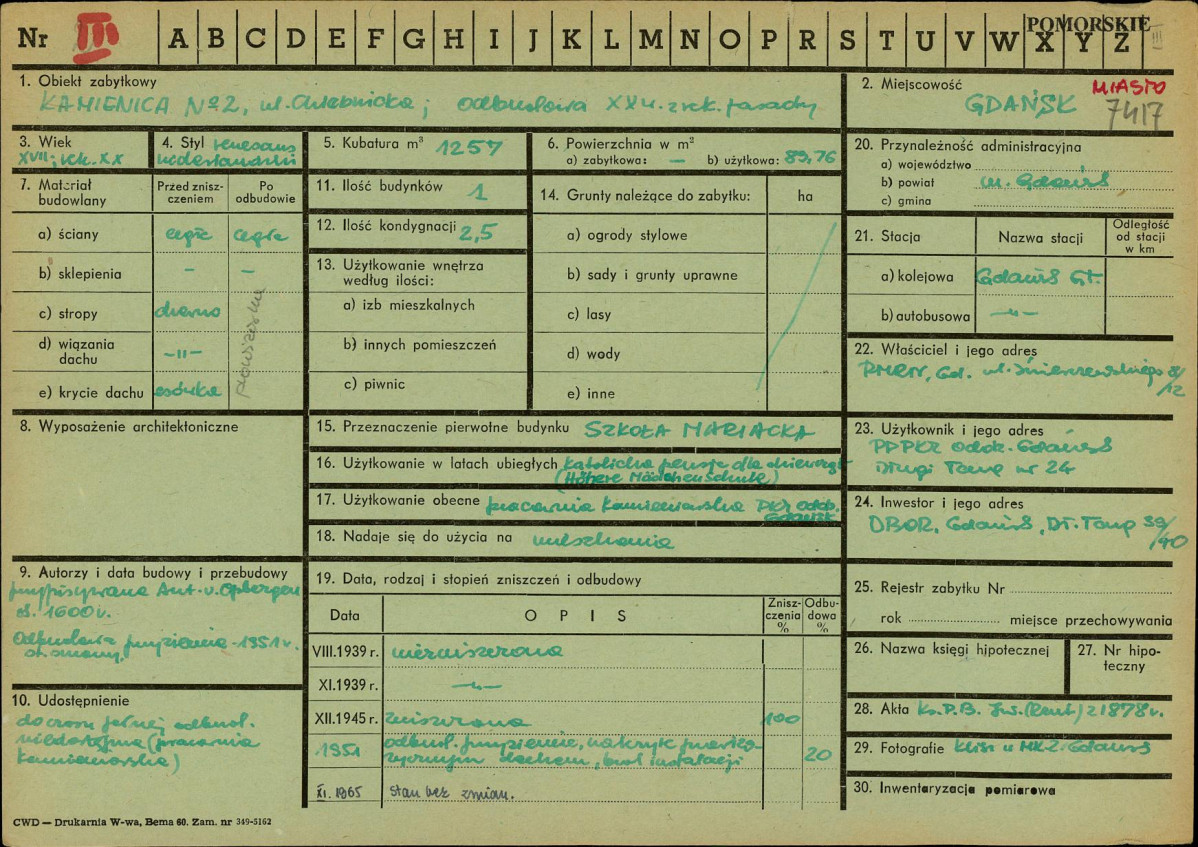 Nr III A B C D E F G H I J K L M N O P R S T U V W X Y Z
POMORSKIE
III
1. Obiekt zabytkowy
KAMIENICA Nº 2, ul. Chlebnicka; odbudowa XX w. rek. fasady
2. Miejscowość
GDAŃSK
MIASTO
7417
3. Wiek
XVII; rek. XX
4. Styl renesans
niderlandzki
5. Kubatura m³ 1257
6. Powierzchnia w m²
a) zabytkowa: — b) użytkowa: 89,76
7. Materiał
budowlany
Przed znisz-
czeniem
Po
odbudowie
a) ściany cegła cegła
b) sklepienia – –
c) stropy drewno
d) wiązania
dachu –"–
e) krycie dachu esówka
8. Wyposażenie architektoniczne
9. Autorzy i data budowy i przebudowy
przypisywana Ant. v. Opbergen
ok. 1600 r.
Odbudowa przyziemia - 1951 r.
10. Udostępnienie
do czasu pełnej odbud.
niedostępna (pracownia
kamieniarska)
11. Ilość budynków 1
12. Ilość kondygnacji 2,5
13. Użytkowanie wnętrza
według ilości:
a) izb mieszkalnych
b) innych pomieszczeń
c) piwnic
14. Grunty należące do zabytku: ha
a) ogrody stylowe
b) sady i grunty uprawne
c) lasy
d) wody
e) inne
15. Przeznaczenie pierwotne budynku SZKOŁA MARIACKA
16. Użytkowanie w latach ubiegłych katolicka pensja dla dziewcząt
(Höhere Mädchenschule)
17. Użytkowanie obecne pracownia kamieniarska PKZ odd.
Gdańsk
18. Nadaje się do użycia na mieszkania
19. Data, rodzaj i stopień zniszczeń i odbudowy
Data OPIS Znisz-
czenia
% Odbu-
dowa
%
VIII.1939 r. niezniszczona
XI.1939 r. –"–
XII.1945 r. zniszczona 100
1951 odbud. przyziemie, nakryte prowizo-
rycznym dachem, brak instalacji 20
XI. 1965 stan bez zmian.
20. Przynależność administracyjna
a) województwo
b) powiat m. Gdańsk
c) gmina
21. Stacja Nazwa stacji Odległość
od stacji
w km
a) kolejowa Gdańsk Gł.
b) autobusowa –"–
22. Właściciel i jego adres
PMRN, Gd. ul. Świerczewskiego 8/12
23. Użytkownik i jego adres
PPPKZ oddz. Gdańsk
Długi Targ nr 24
24. Inwestor i jego adres
DBOR, Gdańsk, Dł. Targ 39/40
25. Rejestr zabytku Nr
rok miejsce przechowywania
26. Nazwa księgi hipotecznej
27. Nr hipo-
teczny
28. Akta Ks. P.B. z 1878 r.
29. Fotografie klisz u MKZ-Gdańsk
30. Inwentaryzacja pomiarowa
CWD — Drukarnia W-wa, Bema 60. Zam. nr 349-5162